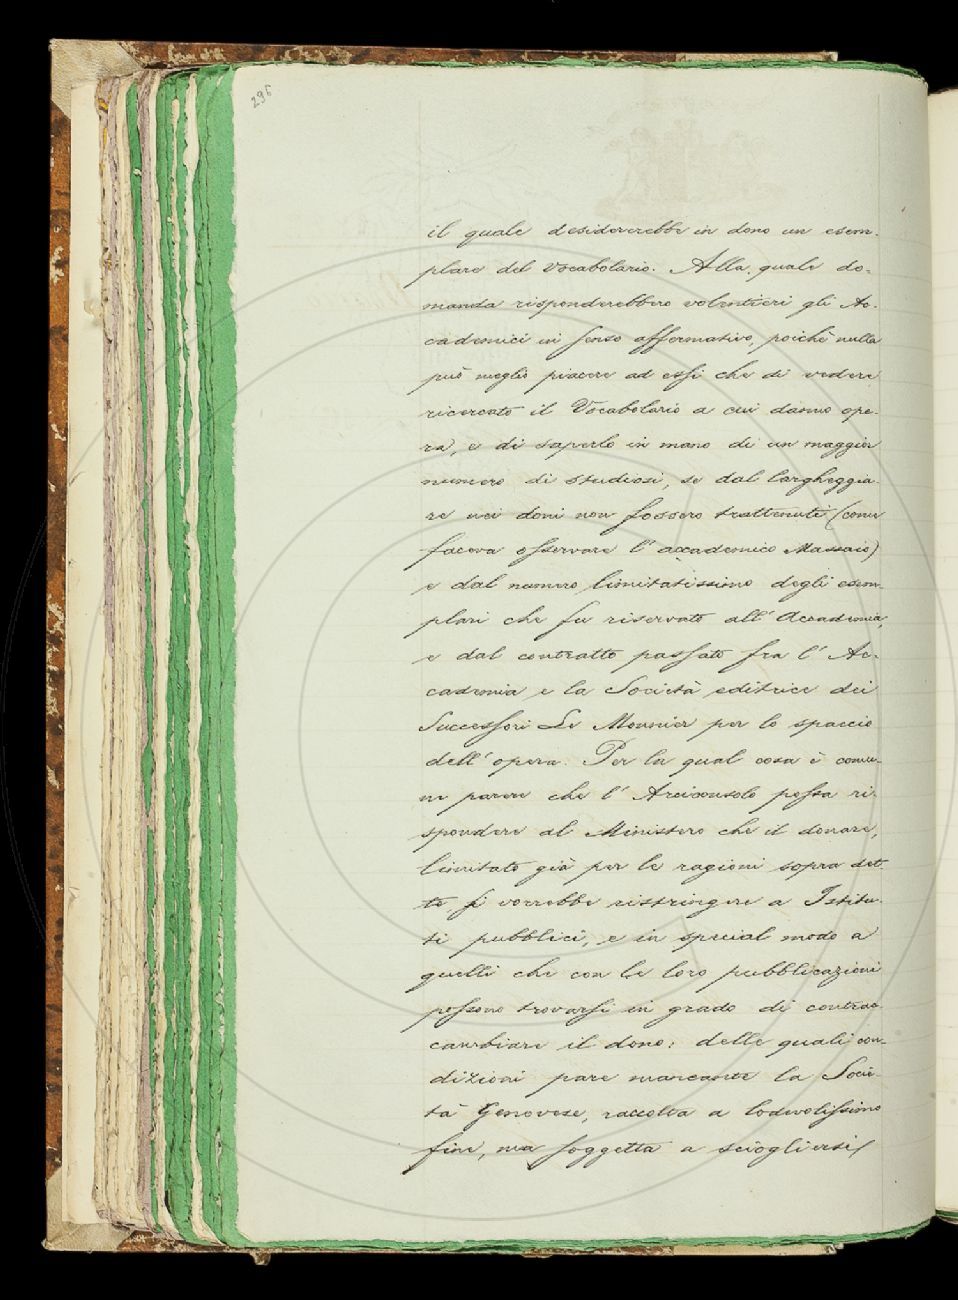 295
il quale desidererebbe in dono un esem-
plare del Vocabolario. Alla quale do-
manda risponderebbero volentieri gli Ac-
cademici in senso affermativo, poichè nulla
può meglio piacere ad essi che di vedere
ricercato il Vocabolario a cui danno ope-
ra, e di saperlo in mano di un maggior
numero di studiosi, se dal largheggia-
re nei doni non fossero trattenuti (come
faceva osservare l'accademico Massaio)
e dal numero limitatissimo degli esem-
plari che fu riservato all'Accademia,
e dal contratto passato fra l'Ac-
cademia e la Società editrice dei
Successori Le Monnier per lo spaccio
dell'opera. Per la qual cosa è comu-
ne parere che l'Arciconsolo possa ri-
spondere al Ministero che il donare,
limitato già per le ragioni sopra det-
te si vorrebbe ristringere a Istitu-
ti pubblici, e in special modo a
quelli che con le loro pubblicazioni
possono trovarsi in grado di contrac-
cambiare il dono: delle quali con-
dizioni pare mancante la Socie-
tà Genovese, raccolta a lodevolissimo
fine, ma soggetta a sciogliersi,